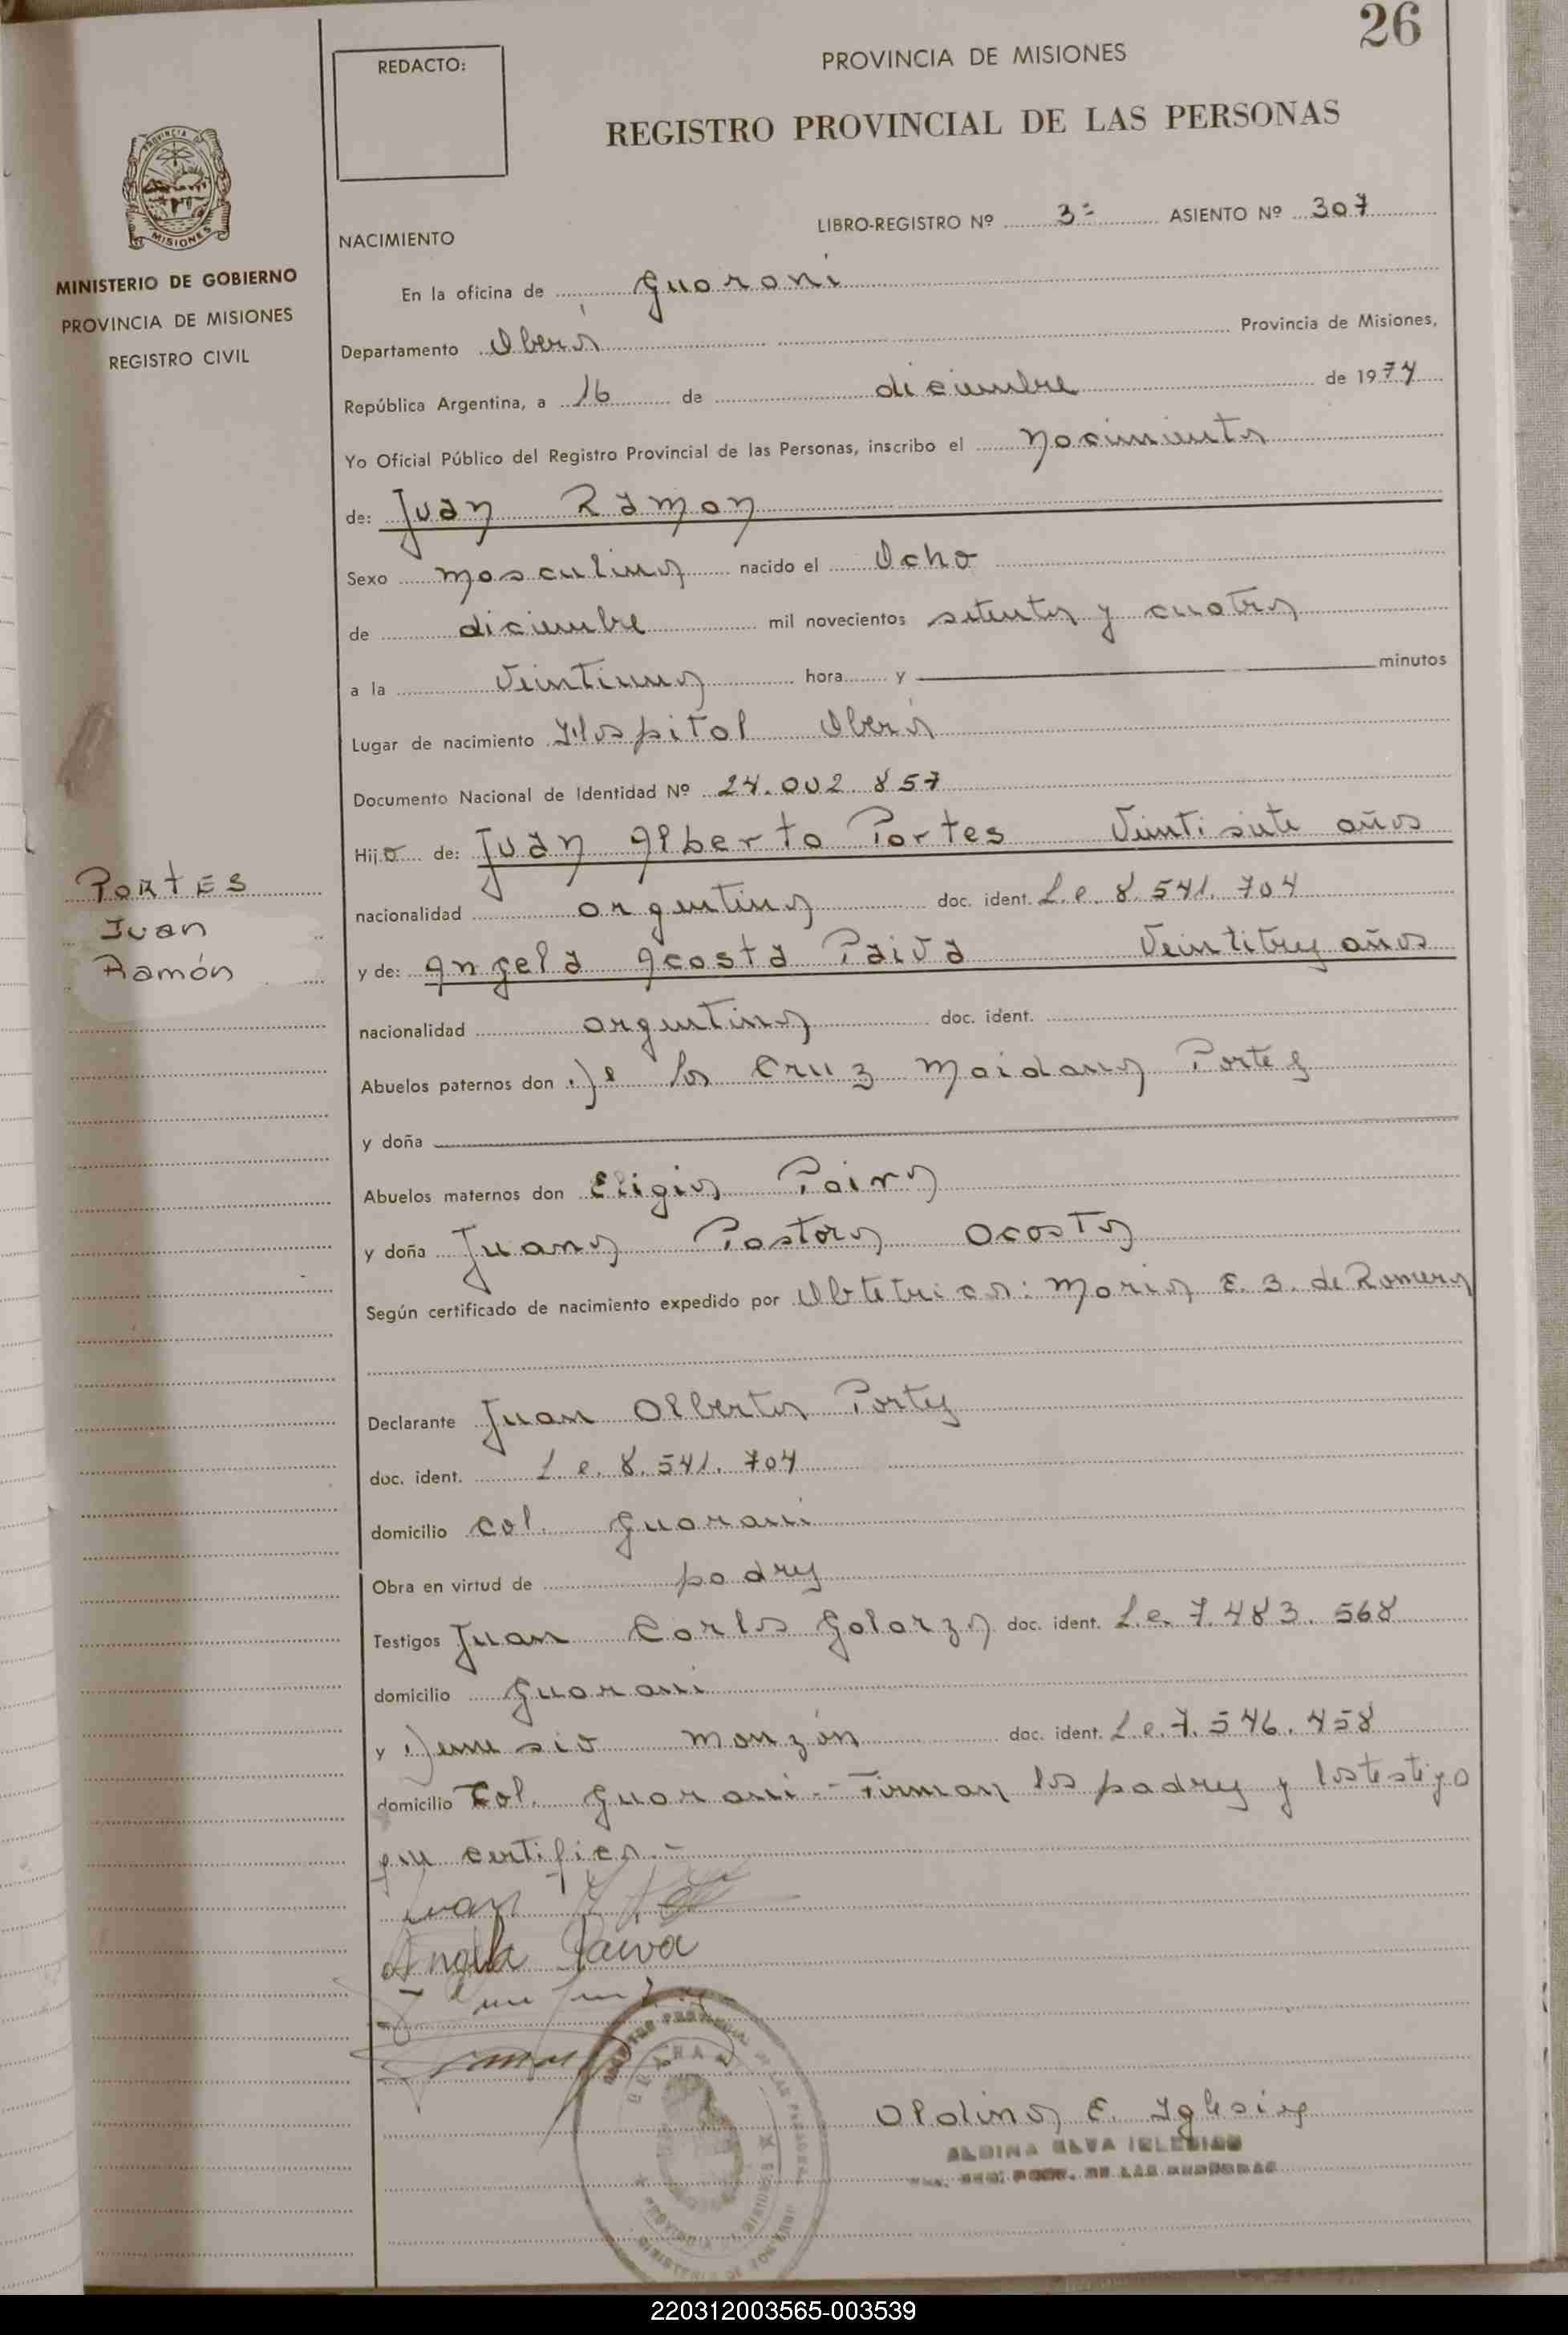 26
REDACTO:
PROVINCIA DE MISIONES
REGISTRO PROVINCIAL DE LAS PERSONAS
MISIONES
MINISTERIO DE GOBIERNO
PROVINCIA DE MISIONES
REGISTRO CIVIL
NACIMIENTO
LIBRO-REGISTRO Nº 3º ASIENTO Nº 307
En la oficina de Guaraní
Departamento Oberá Provincia de Misiones,
República Argentina, a 16 de diciembre de 1974
Yo Oficial Público del Registro Provincial de las Personas, inscribo el nacimiento
de: Juan Ramon
Sexo masculino nacido el Ocho
de diciembre mil novecientos setenta y cuatro
a la Veintiuna hora y minutos
Lugar de nacimiento Hospital Oberá
Documento Nacional de Identidad Nº 24.002.857
Hijo de: Juan Alberto Portes Veintisiete años
nacionalidad argentina doc. ident. L.e. 8.541.704
y de: Angela Acosta Paiva Veintitres años
nacionalidad argentina doc. ident.
Abuelos paternos don De la Cruz Maidana Portes
y doña
Abuelos maternos don Eligio Paiva
y doña Juana Pastora Acosta
Según certificado de nacimiento expedido por Obtetrica: Maria E. B. de Romero
Declarante Juan Alberto Portes
doc. ident. L.e. 8.541.704
domicilio Col. Guarani
Obra en virtud de padres
Testigos Juan Carlos Galarza doc. ident. L.e. 7.483.568
domicilio Guarani
y Nemesio Monzón doc. ident. L.e. 7.546.458
domicilio Col. Guarani - Firman los padres y los testigo
que certifico.-
PORTES
Juan
Ramón
Juan
Angela Paiva
Aldina E. Iglesias
ALDINA ELVA IGLESIAS
REG. PROV. DE LAS PERSONAS
220312003565-003539